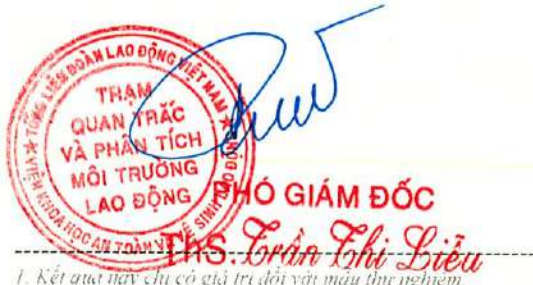 TỔNG LIÊN ĐOÀN LAO ĐỘNG VIỆT NAM
VIỆN KHOA HỌC AN TOÀN VÀ VỆ SINH LAO ĐỘNG
TRẠM
QUAN TRẮC
VÀ PHÂN TÍCH
MÔI TRƯỜNG
LAO ĐỘNG
PHÓ GIÁM ĐỐC
ThS. Trần Thị Liễu
1. Kết quả này chỉ có giá trị đối với mẫu thử nghiệm